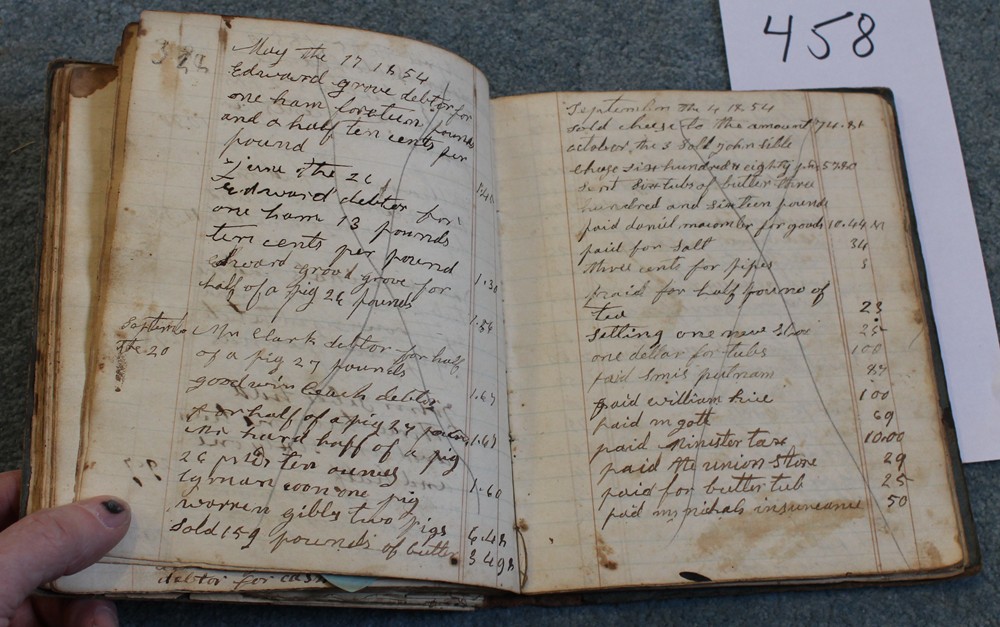 458
May the 17 1854
Edward grove debtor for
one ham forteen pounds
and a half ten cents per
pound
June the 26
Edward debtor for
one ham 13 pounds
ten cents per pound 1.30
Edward grove for
half of a pig 26 pounds 1.56
September Mr Clark debtor for half
the 20 of a pig 27 pounds 1.67
goodwin beach debtor
for half of a pig 27 pounds 1.67
Mr hard half of a pig
26 ten ounces 1.60
lyman coon one pig
warren gibbs two pigs 6.48
Sold 159 pounds of butter
debtor for cash
September the 4 1854
sold cheese to the amount
october the 3 sold john
cheese six hundred & eighty
sent tubs of butter three
hundred and sixteen pounds
paid daniel macomber for goods 10.44
paid for salt 34
three cents for pipes 3
paid for half pound of
tea 23
selling one new 25
one dollar for tubs 100
paid putnam
paid william 100
paid 69
paid Minister tax 10.00
paid the union Store 29
paid for butter tub 25
paid insureance 50